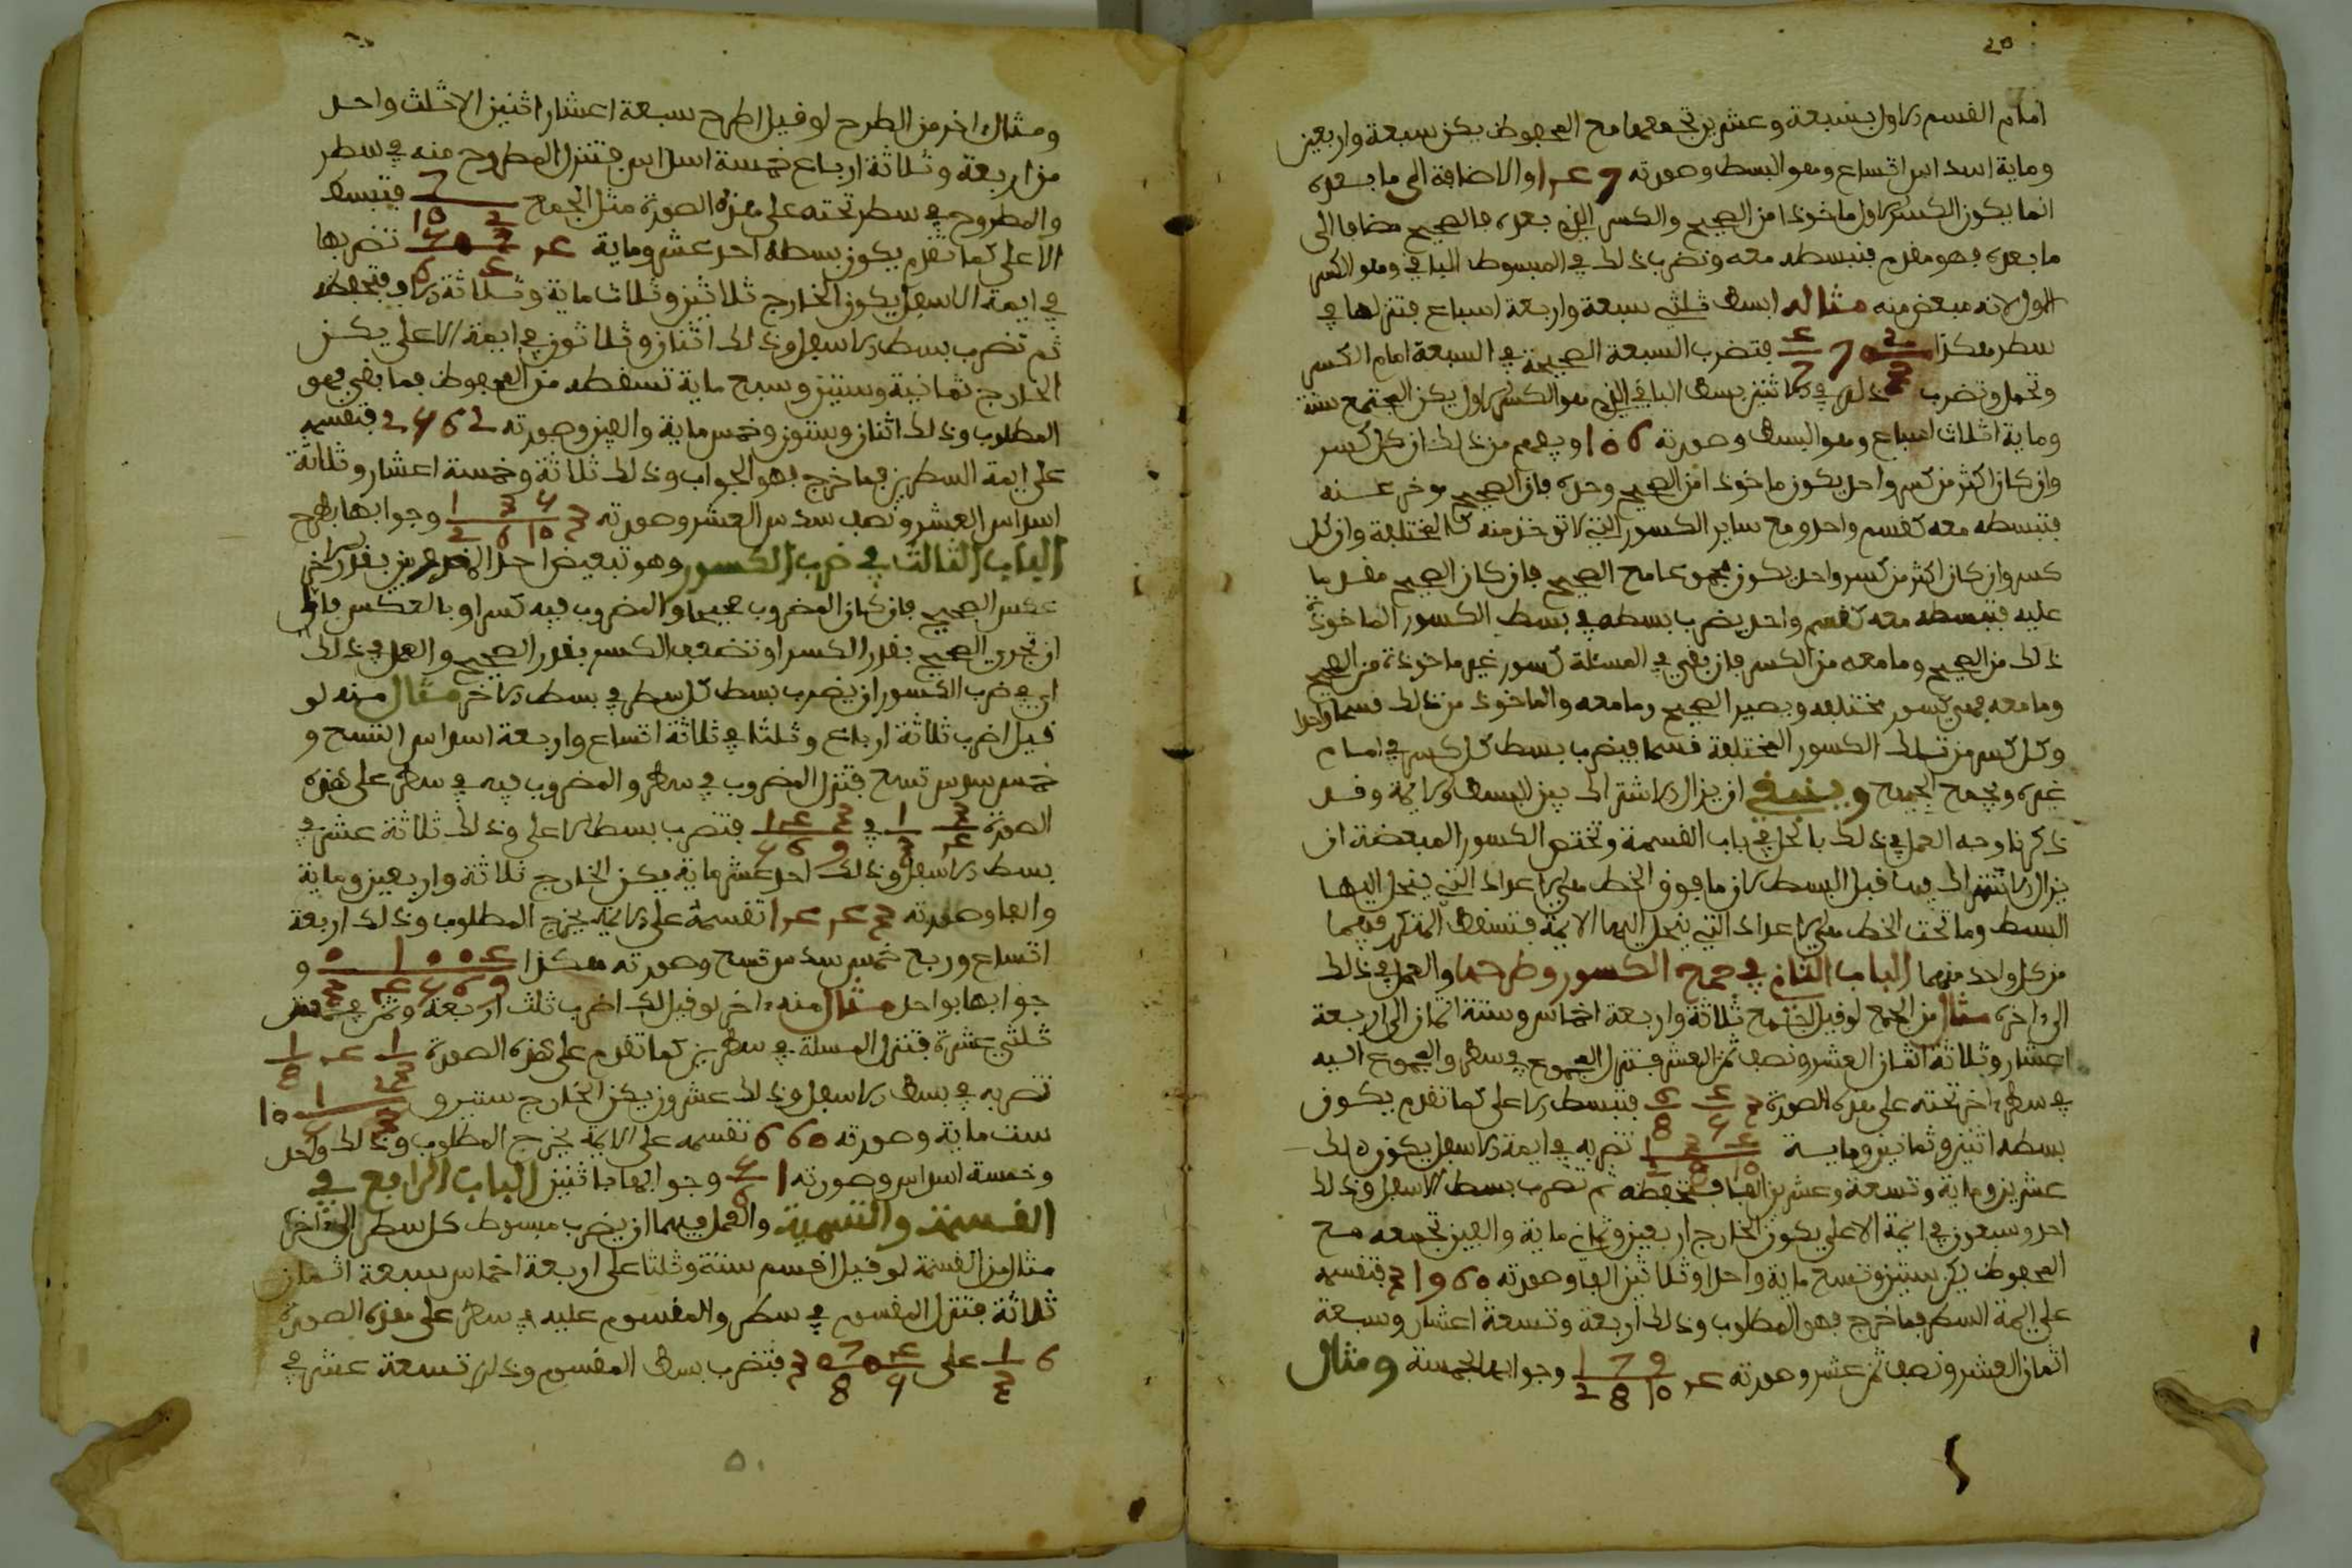 امام القسم الاول بسبعة وعشرين تجمعهما مع المحفوظ يكن سبعة واربعين
وماية اسداس اتساع وهو البسط وصورته 147 والاضافة الى ما بعده
انما يكون الكسر الاول ماخوذا من الصحيح والكسر الذي بعده فالصحيح مضافا الى
ما بعده فهو مقدم فتبسطه معه وتضرب ذلك في المبسوط الباقي وهو الكسر
الاول لانه مبعض منه مثاله ابسط ثلثي سبعة واربعة اسباع فتنزلها في
سطر هكذا 2 3 7 4 7 فتضرب السبعة الصحيحة في السبعة امام الكسر
وتحمل وتضرب ذلك في الاثنين بسط الباقي الذي هو الكسر الاول يكن المجتمع ستة
وماية اثلاث اسباع وهو البسط وصورته 106 ويفهم من ذلك ان كل كسر
وان كان اكثر من كسر واحد يكون ماخوذا من الصحيح وحده فان الصحيح موخر عنه
فتبسطه معه كقسم واحد ومع ساير الكسور التي لا توخذ منه كالمختلفة وان كل
كسر وان كان اكثر من كسر واحد يكون مجموعا مع الصحيح فان كان الصحيح مقدما
عليه فتبسطه معه كقسم واحد يضرب بسطه في بسط الكسور الماخوذة
ذلك من الصحيح وما معه من الكسر فان بقي في المسئلة كسور غير ماخوذة من الصحيح
وما معه فهي كسور مختلفه ويصير الصحيح وما معه والماخوذ من ذلك قسما واحدا
وكل كسر من تلك الكسور المختلفة قسما فيضرب بسط كل كسر في امام
غيره ويجمع الجميع وينبغي ان يزال الاشتراك بين البسط والايمة وقد
ذكرنا وجه العمل في ذلك بالحل في باب القسمة وتختص الكسور المبعضة ان
يزال الاشتراك فيها قبل البسط كان ما فوق الخط هي الاعداد التي ينحل اليها
البسط وما تحت الخط هي الاعداد التي ينحل اليها الايمة فتسقط المتكرر فيهما
من كل واحد منهما الباب الثاني في جمع الكسور وطرحها والعمل في ذلك
الى اخره مثال من الجمع لو قيل اجمع ثلاثة واربعة اخماس وستة اثمان الى اربعة
اعشار وثلاثة اثمان العشر ونصف ثمن العشر فتنزل المجموع في سطر والمجموع اليه
في سطر اخر تحته على هذه الصورة 3 4 5 6 8 فتبسط الاعلى كما تقدم يكون
بسطه اثنين وثمانين وماية 4 3 1 10 8 2 تضربه في ايمة الاسفل يكون ذلك
عشرين وماية وتسعة وعشرين الفا فتحفظه ثم تضرب بسط الاسفل وذلك
احد وسبعون في ايمة الاعلى يكون الخارج اربعين وثمان ماية والفين تجمعه مع
المحفوظ يكن ستين وتسع ماية واحدا وثلاثين الفا وصورته 31960 فتقسمه
على ايمة السطرين فما خرج فهو المطلوب وذلك اربعة وتسعة اعشار وسبعة
اثمان العشر ونصف ثمن عشر وصورته 4 9 7 1 10 8 2 وجوابها بخمسة ومثال
ومثال اخر من الطرح لو قيل اطرح سبعة اعشار اثنين الا ثلث واحد
من اربعة وثلاثة ارباع خمسة اسداس فتنزل المطروح منه في سطر
والمطروح في سطر تحته على هذه الصورة مثل الجمع 7 10 2 فتبسط
الاعلى كما تقدم يكون بسطه احد عشر وماية تضربها
في ايمة الاسفل يكون الخارج ثلاثين وثلاث ماية وثلاثة الاف فتحفظه
ثم تضرب بسط الاسفل وذلك اثنان وثلاثون في ايمة الاعلى يكن
الخارج ثمانية وستين وسبع ماية تسقطه من المحفوظ فما بقي فهو
المطلوب وذلك اثنان وستون وخمس ماية والفين وصورته 2562 فتقسمه
على ايمة السطرين فما خرج فهو الجواب وذلك ثلاثة وخمسة اعشار وثلاثة
اسداس العشر ونصف سدس العشر وصورته 3 5 3 1 10 6 2 وجوابها بطرح
الباب الثالث في ضرب الكسور وهو تبعيض احد المضروبين بقدر الاخر
عكس الصحيح فان كان المضروب صحيحا والمضروب فيه كسرا وبالعكس فاما
ان تجزي الصحيح بقدر الكسر او تضعف الكسر بقدر الصحيح والعمل في ذلك
اي في ضرب الكسور ان يضرب بسط كل سطر في بسط الاخر مثال منه لو
قيل اضرب ثلاثة ارباع وثلثا في ثلاثة اتساع واربعة اسداس التسع و
خمس سدس تسع فتنزل المضروب في سطر والمضروب فيه في سطر على هذه
الصورة 3 4 1 3 في 3 4 1 9 6 5 فتضرب بسط الاعلى وذلك ثلاثة عشر في
بسط الاسفل وذلك احد عشر ماية يكن الخارج ثلاثة واربعين وماية
والفا وصورته 1443 تقسمه على الايمة يخرج المطلوب وذلك اربعة
اتساع وربع خمس سدس تسع وصورته هكذا 4 0 0 1 0 9 6 5 4 3 و
جوابها بواحد مثال منه اخر لو قيل لك اضرب ثلث اربعة وثمن في خمس
ثلثي عشرة فتنزل المسئلة في سطرين كما تقدم على هذه الصورة 1 3 4 1 8
تضربه في بسط الاسفل وذلك عشرون يكن الخارج ستين و 1 5 2 3 10
ست ماية وصورته 660 تقسمه على الايمة يخرج المطلوب وذلك واحد
وخمسة اسداس وصورته 1 5 6 وجوابها باثنين الباب الرابع في
القسمة والتسمية والعمل فيهما ان يضرب مبسوط كل سطر في ايمة الاخر
مثال من القسمة لو قيل اقسم ستة وثلثا على اربعة اخماس سبعة اثمان
ثلاثة فتنزل المقسوم في سطر والمقسوم عليه في سطر على هذه الصورة
6 1 3 على 4 5 7 8 3 فتضرب بسط المقسوم وذلك تسعة عشر في